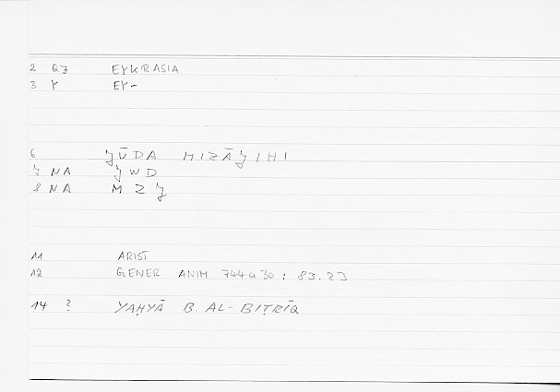 2 QZ EYKRASIA
3 Y EY-
6 ǦŪDA MIZĀǦIHI
7 NA ǦWD
8 NA MZǦ
11 ARIST
12 GENER ANIM 744a30 ; 83.23
14 ? YAḤYĀ B. AL-BIṬRĪQ